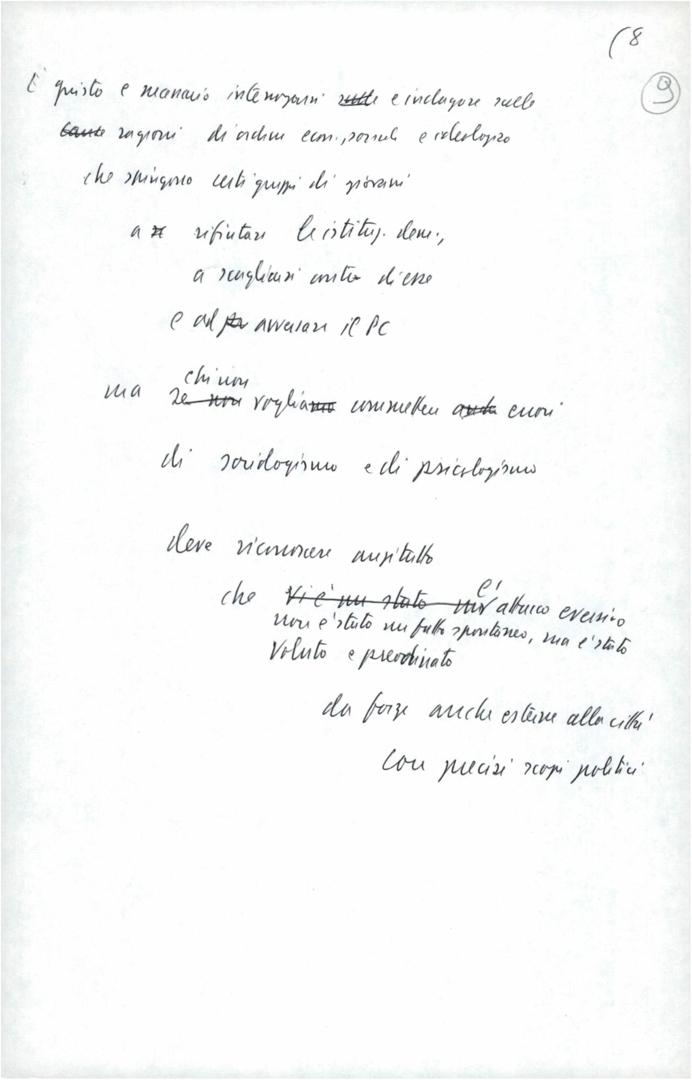 (8
9
È giusto e necessario interrogarsi sulle e indagare sulle
cause ragioni di ordine econ., sociale e ideologico
che spingono certi gruppi di giovani
a rifiutare le istituz. dem.,
a scagliarsi contro di esse
e ad avversare il PC
chi non
ma se non vogliamo commettere errori
di sociologismo e di psicologismo
deve riconoscere anzitutto
che vi è uno stato un attacco eversivo
non è stato un fatto spontaneo, ma è stato
voluto e preordinato
da forze anche esterne alla città
con precisi scopi politici